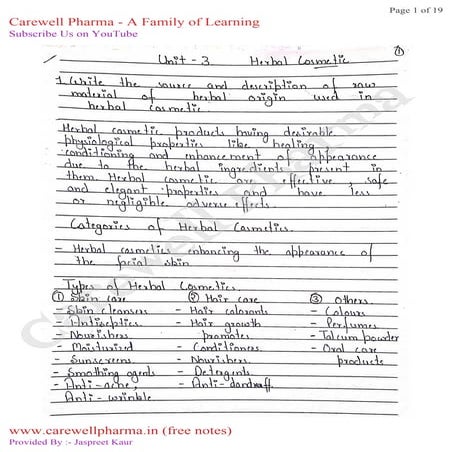 Carewell Pharma - A Family of Learning
Page 1 of 19
Subscribe Us on YouTube
①
Unit - 3 Herbal Cosmetic
1. Write the source and description of raw
material of herbal origin used in
herbal cosmetic.
Herbal cosmetic products having desirable
physiological properties like healing,
conditioning and enhancement of appearance
due to the herbal ingredients present in
them. Herbal cosmetic are effective, safe
and elegant properties and have less
or negligible adverse effects.
Categories of Herbal Cosmetics.
- Herbal cosmetics enhancing the appearance of
the facial skin
Types of Herbal Cosmetics.
① Skin care ② Hair care ③ Others.
- Skin cleansers - Hair colorants - Colours
- Antiseptics - Hair growth - Perfumes
- Nourishers promotes - Talcum powder
- Moisturized - Conditioners. - Oral care
- Sunscreens. - Nourishers. products
- Smothing agents - Detergents.
- Anti-acne, - Anti-dandruff.
Anti-wrinkle
Carewell Pharma
www.carewellpharma.in (free notes)
Provided By :- Jaspreet Kaur